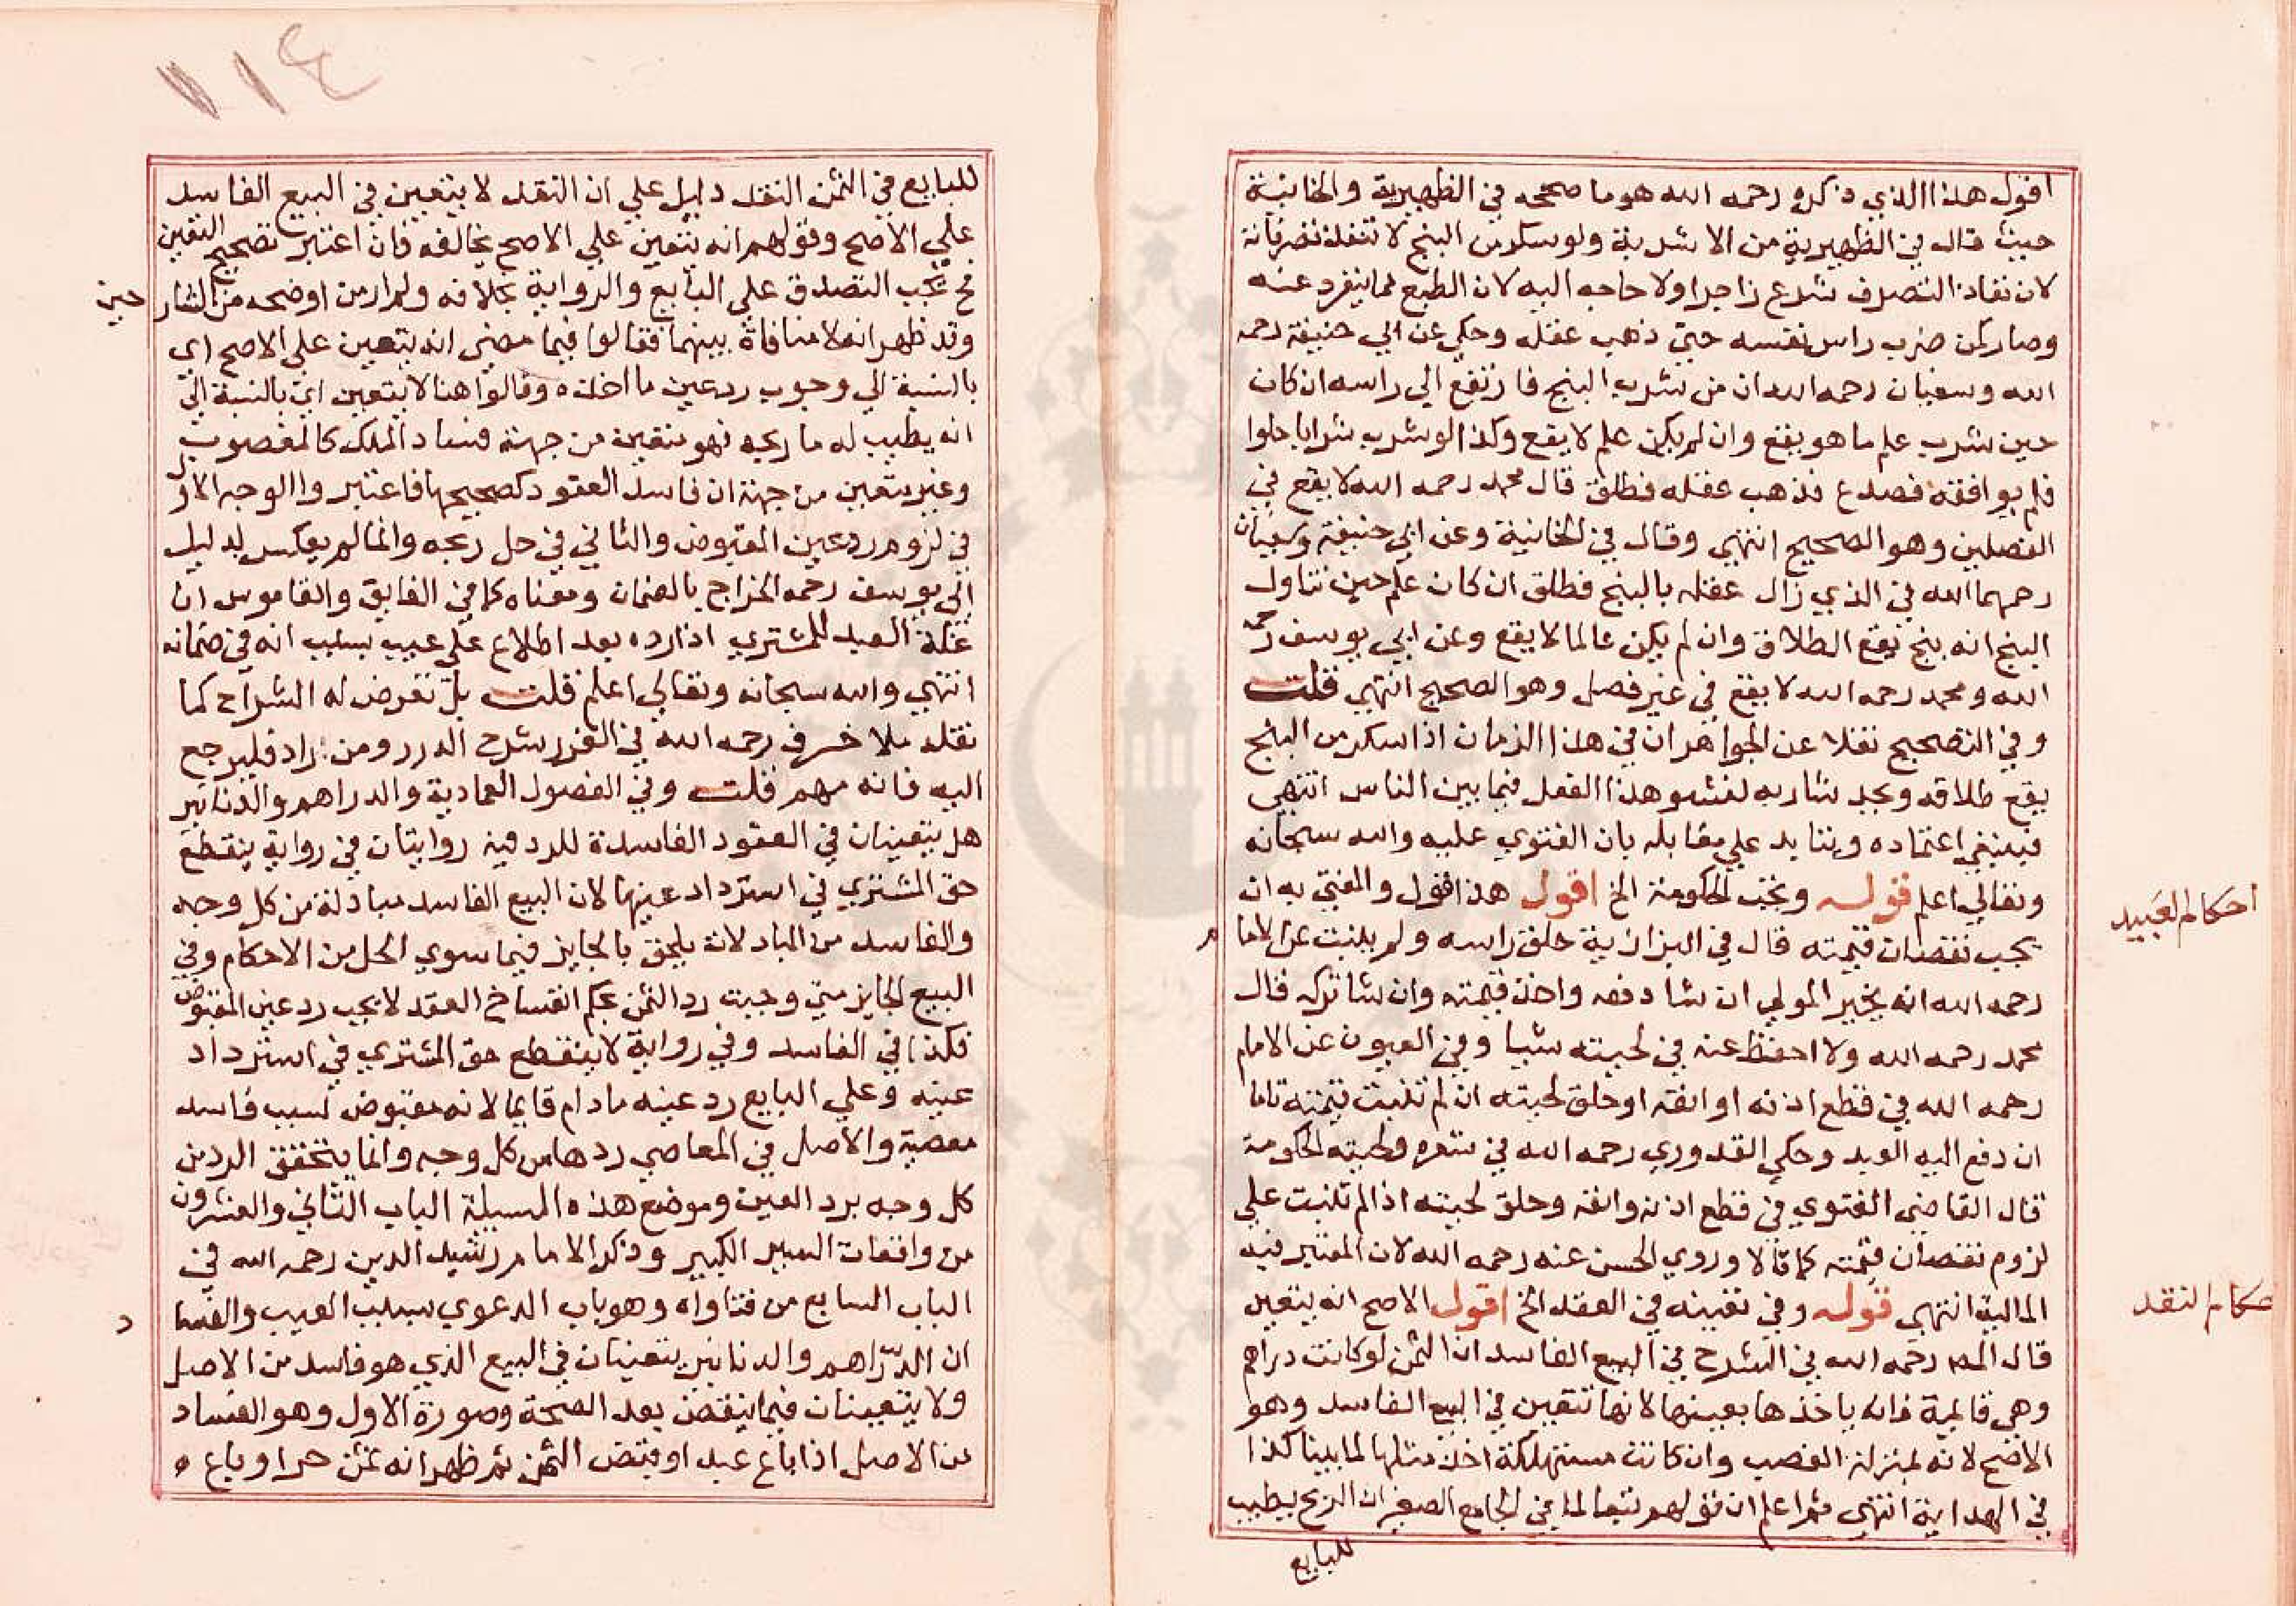 اقول هذا الذي ذكره رحمه الله هو ما صححه في الظهيرية والخانية
حيث قال في الظهيرية من الاشربة ولو سكر من البنج لا تنفذ تصرفاته
لان نفاذ التصرف شرع زاجرا ولا حاجه اليه لان الطبع مما ينفرد عنه
وصار كمن ضرب راس نفسه حتي ذهب عقله وحكي عن ابي حنيفة رحمه
الله وسفيان رحمه الله ان من شرب البنج فارتفع الي راسه ان كان
حين شرب علم ما هو يقع وان لم يكن علم لا يقع وكذا لو شرب شرابا حلوا
فلم يوافقه فصدع فذهب عقله فطلق قال محمد رحمه الله لا يقع في
الفصلين وهو الصحيح انتهي وقال في الخانية وعن ابي حنيفة وسفيان
رحمهما الله في الذي زال عقله بالبنج فطلق ان كان علم حين تناول
البنج انه بنج يقع الطلاق وان لم يكن عالما لا يقع وعن ابي يوسف رحمه
الله ومحمد رحمه الله لا يقع في غير فصل وهو الصحيح انتهي قلت
وفي التصحيح نقلا عن الجواهر ان في هذا الزمان اذا سكر من البنج
يقع طلاقه ويحد شاربه لفشو هذا الفعل فيما بين الناس انتهي
فينبغي اعتماده ويتايد علي مقابله بان الفتوي عليه والله سبحانه
وتعالي اعلم قوله وتجب الحكومة الخ اقول هذا قول والمفتي به ان
يجب نقصان قيمته قال في البزازية حلق راسه ولم يلنبت عن الاما
م
احكام العبيد
رحمه الله انه يخير المولي ان شا دفعه واخذ قيمته وان شا تركه قال
محمد رحمه الله ولا احفظ عنه في لحيته شيا وفي العيون عن الامام
رحمه الله في قطع اذنه او انفه او حلق لحيته ان لم تنبت قيمته تاما
ان دفع اليه العبد وحكي القدوري رحمه الله في شعره ولحيته الحكومة
قال القاضي الفتوي في قطع اذنه وانفه وحلق لحيته اذا لم تنبت علي
لزوم نقصان قيمته كما قالا وروي الحسن عنه رحمه الله لان المعتبر فيه
المالية انتهي قوله وفي تعيينه في العقد الخ اقول الاصح انه يتعين
حكام النقد
قال المص رحمه الله في الشرح في البيع الفاسد ان الثمن لو كانت دراهم
وهي قايمة فانه ياخذها بعينها لانها تتعين في البيع الفاسد وهو
الاصح لانه بمنزلة الغصب وان كانت مستهلكة اخذ مثلها لما بينا كذا
في الهداية انتهي ثم اعلم ان قولهم تبعا لما في الجامع الصغير ان الربح يطيب
للبايع
١١٤
للبايع في الثمن النقد دليل علي ان النقد لا يتعين في البيع الفاسد
علي الاصح وقولهم انه يتعين علي الاصح يخالفه فان اعتبر تصحيح التعين
يجب التصدق علي البايع والرواية بخلافه ولم ار من اوضحه من الشار
حين
وقد ظهر انه لا منافاة بينهما فقالوا فيما مضي انه يتعين علي الاصح اي
بالنسبة الي وجوب رد عين ما اخذه وقالوا هنا لا يتعين اي بالنسبة الي
انه يطيب له ما ربحه فهو متعين من جهة فساد الملك كالمغصوب
وغير متعين من جهة ان فاسد العقود كصحيحها فاعتبروا الوجه الاول
في لزوم رد عين المقبوض والثاني في حل ربحه وانما لم يعكس لدليل
ابي يوسف رحمه الخراج بالضمان ومعناه كما في الفايق والقاموس ان
غلة العبد للمشتري اذا رده بعد اطلاع علي عيب بسبب انه في ضمانه
انتهي والله سبحانه وتعالي اعلم قلت بل تعرض له الشراح كما
نقله ملا خسرو رحمه الله في الغرر شرح الدرر ومن راد فليرجع
اليه فانه مهم قلت وفي الفصول العمادية والدراهم والدنانير
هل يتعينان في العقود الفاسدة للرد فيه روايتان في رواية ينقطع
حق المشتري في استرداد عينها لان البيع الفاسد مبادلة من كل وجه
والفاسد من المبادلات يلحق بالجايز فيما سوي الحل من الاحكام وفي
البيع الجايز متي وجبت رد الثمن بحكم انفساخ العقد لا يجب رد عين المقبوض
فكذا في الفاسد وفي رواية لا ينقطع حق المشتري في استرداد
عينه وعلي البايع رد عينه مادام قايما لانه مقبوض بسبب فاسد
معصية والاصل في المعاصي ردها من كل وجه وانما يتحقق الرد من
كل وجه برد العين وموضع هذه المسيلة الباب الثاني والعشرون
من واقعات السير الكبير وذكر الامام رشيد الدين رحمه الله في
الباب السابع من فتاواه وهو باب الدعوي بسبب العيب والفسا
د
ان الدراهم والدنانير يتعينان في البيع الذي هو فاسد من الاصل
ولا يتعينان فيما ينتقض بعد الصحة وصورة الاول وهو الفساد
من الاصل اذا باع عبدا وقبض الثمن ثم ظهر انه ثمن حر او باع